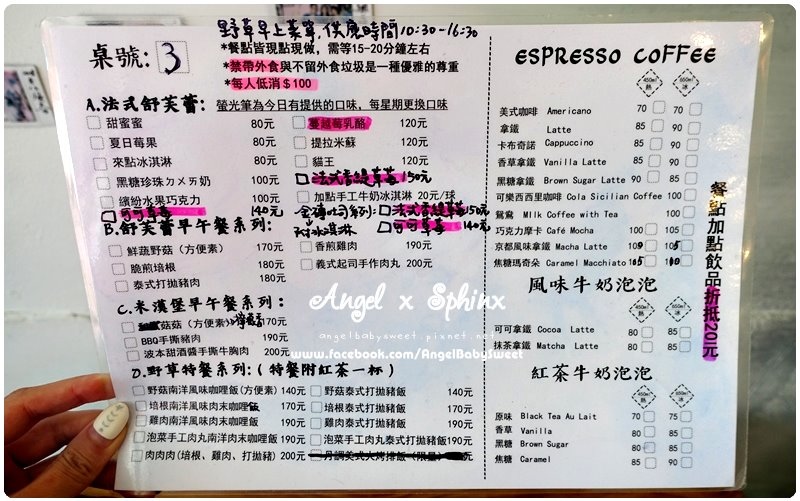 野草早上菜單, 供應時間10:30-16:30
桌號: 3
*餐點皆現點現做，需等15-20分鐘左右
*禁帶外食與不留外食垃圾是一種優雅的尊重
*每人低消$100
A.法式舒芙蕾: 螢光筆為今日有提供的口味，每星期更換口味
甜蜜蜜 80元
蔓越莓乳酪 120元
夏日莓果 80元
提拉米蘇 120元
來點冰淇淋 80元
貓王 120元
黑糖珍珠ㄉㄨㄞ奶 100元
法式香緹草莓 150元
繽紛水果巧克力 100元
加點手工牛奶冰淇淋 20元/球
可可草莓 140元
金磚吐司系列: 法式香緹草莓150元
附冰淇淋 可可草莓 140元
B.舒芙蕾早午餐系列:
鮮蔬野菇(方便素) 170元
香煎雞肉 190元
脆煎培根 180元
義式起司手作肉丸 200元
泰式打拋豬肉 180元
C.米漢堡早午餐系列:
菇菇(方便素) 170元
BBQ手撕豬肉 190元
波本甜酒醬手撕牛胸肉 200元
D.野草特餐系列:(特餐附紅茶一杯)
野菇南洋風味咖哩飯(方便素) 140元
野菇泰式打拋豬飯 140元
培根南洋風味肉末咖哩飯 170元
培根泰式打拋豬飯 170元
雞肉南洋風味肉末咖哩飯 190元
雞肉泰式打拋豬飯 190元
泡菜手工肉丸南洋肉末咖哩飯 190元
泡菜手工肉丸泰式打拋豬飯190元
肉肉肉(培根、雞肉、打拋豬) 200元
ESPRESSO COFFEE
450ml 熱 650ml 冰
美式咖啡 Americano 70 70
拿鐵 Latte 85 90
卡布奇諾 Cappuccino 85 90
香草拿鐵 Vanilla Latte 85 90
黑糖拿鐵 Brown Sugar Latte 90 95
可樂西西里咖啡 Cola Sicilian Coffee 100
鴛鴦 MIlk Coffee with Tea 100
巧克力摩卡 Café Mocha 100 105
京都風味拿鐵 Macha Latte
焦糖瑪奇朵 Caramel Macchiato
餐點加點飲品折抵20元
風味牛奶泡泡
450ml 熱 650ml 冰
可可拿鐵 Cocoa Latte 80 85
抹茶拿鐵 Matcha Latte 80 85
紅茶牛奶泡泡
450ml 熱 650ml 冰
原味 Black Tea Au Lait 70 75
香草 Vanilla 80 85
黑糖 Brown Sugar 80 85
焦糖 Caramel 85 90
Angel x Sphinx
angelbabysweet.pixnet.net
www.facebook.com/AngelBabySweet